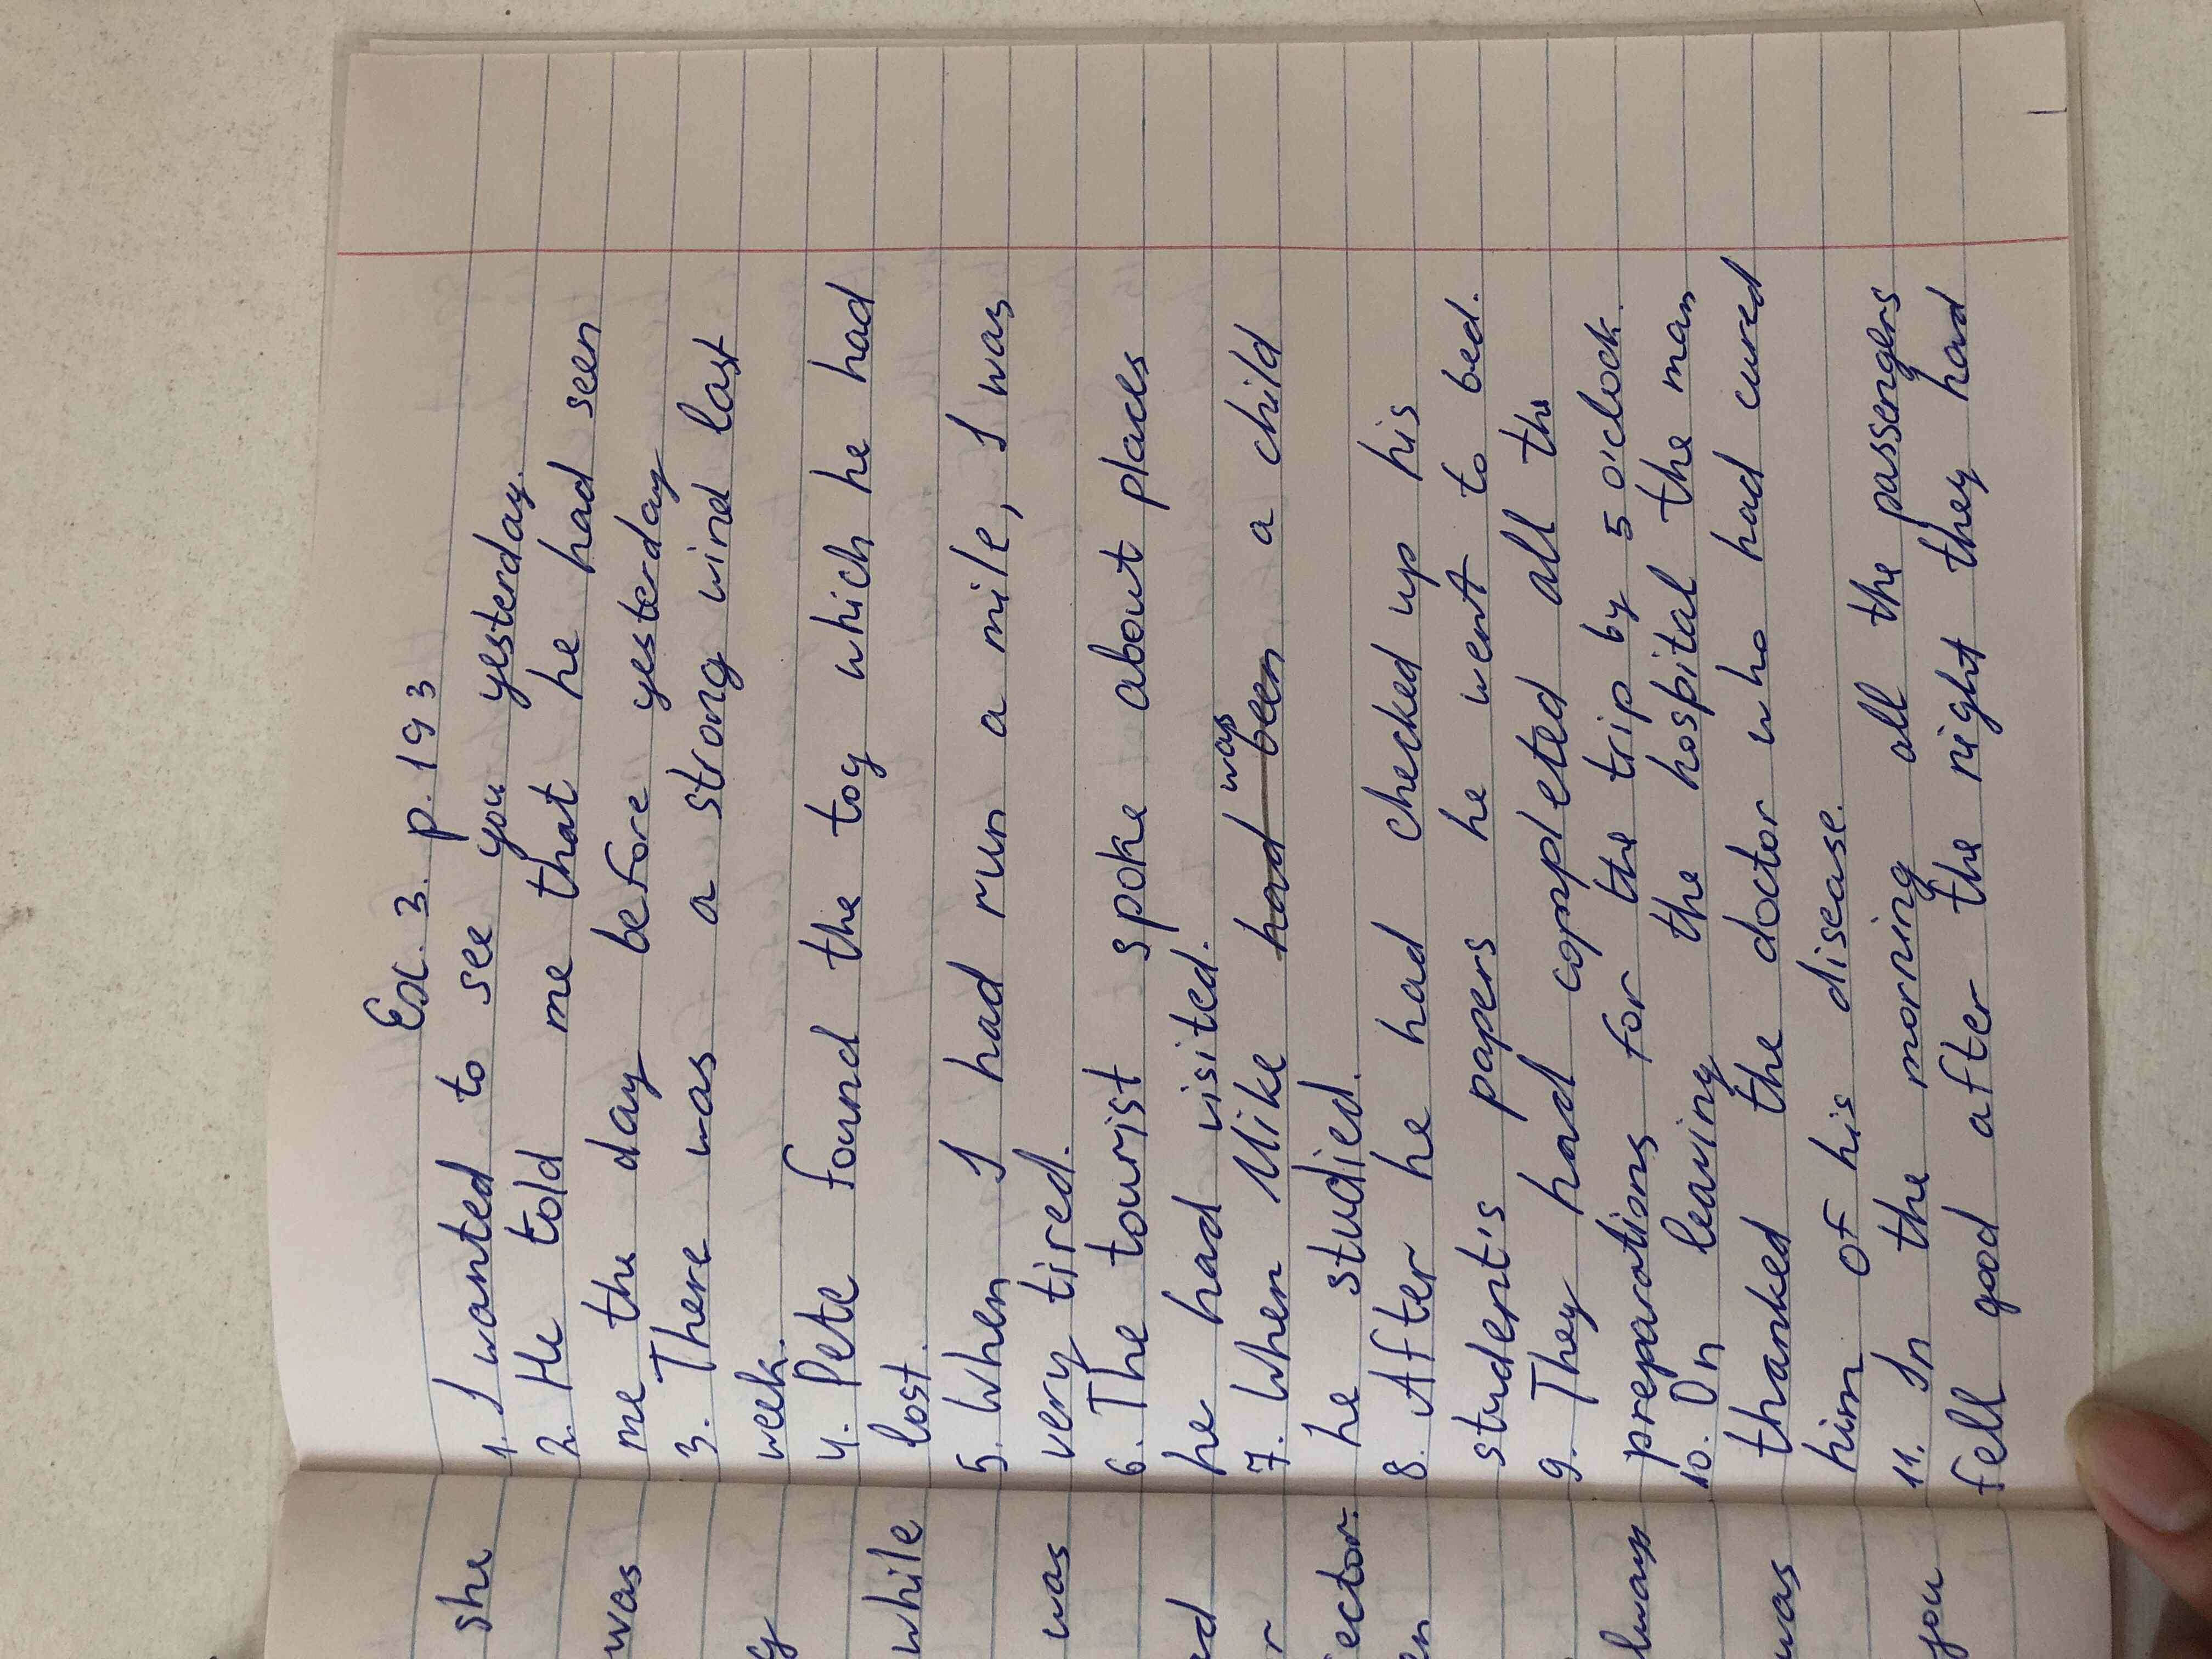 Ex. 3. p. 193
1. I wanted to see you yesterday.
2. He told me that he had seen
me the day before yesterday
3. There was a strong wind last
week.
4. Pete found the toy which he had
lost.
5. When I had run a mile, I was
very tired.
6. The tourist spoke about places
he had visited.
7. When Mike had been was a child
he studied.
8. After he had checked up his
student's papers he went to bed.
9. They had copmpleted all the
preparations for the trip by 5 o'clock.
10. On leaving the hospital the man
thanked the doctor who had cured
him of his disease.
11. In the morning all the passengers
fell good after the night they had
she
was
y
while
was
ed
r
ector.
en
lways
was
you